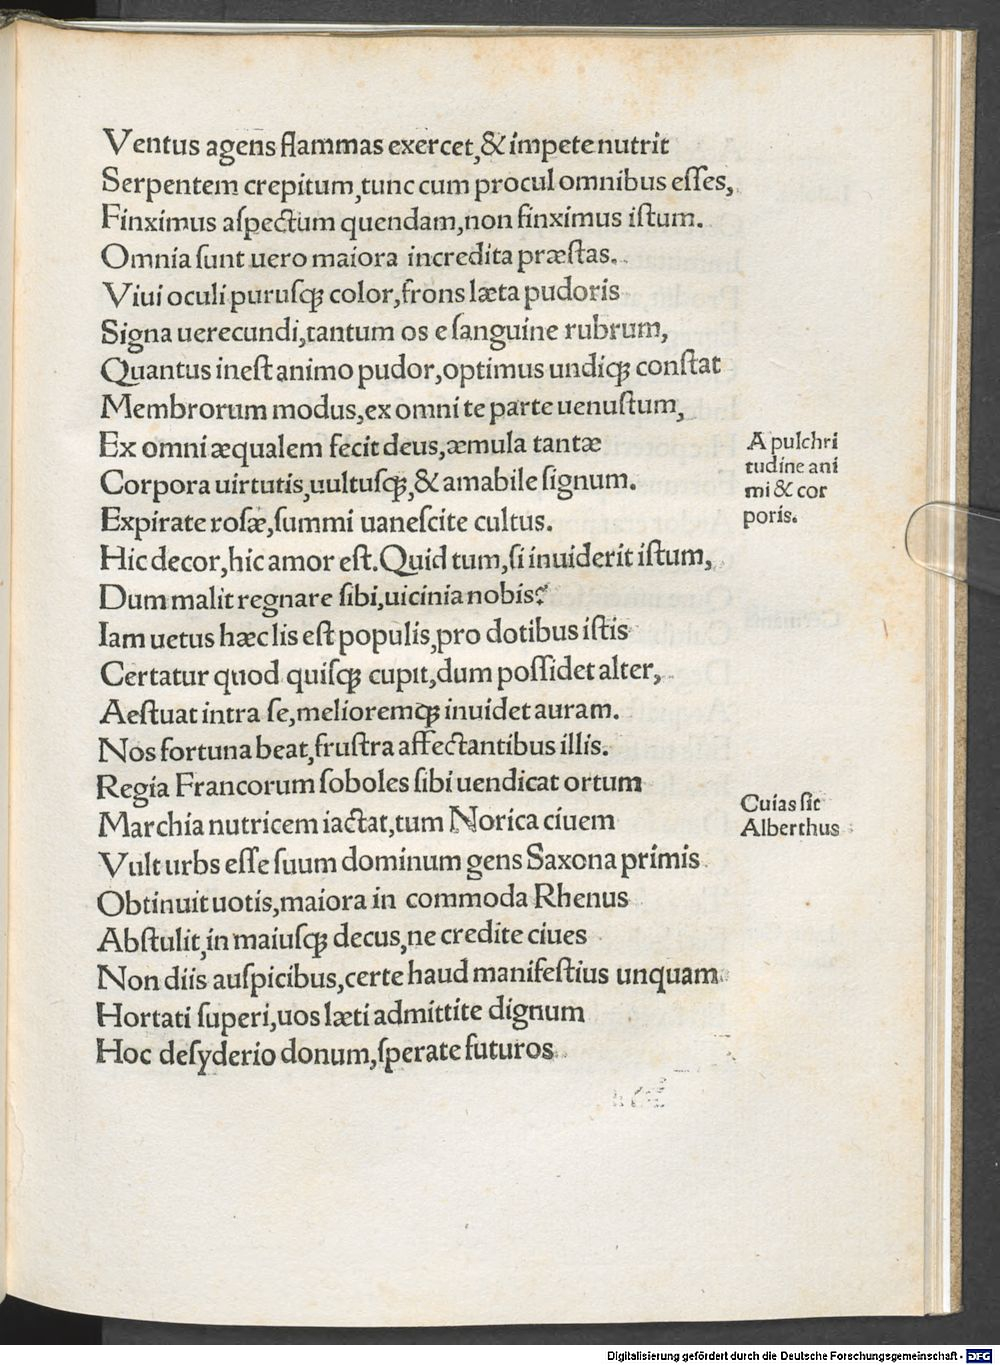 Ventus agens flammas exercet,& impete nutrit
Serpentem crepitum,tunc cum procul omnibus eſſes,
Finximus aſpectum quendam,non finximus iſtum.
Omnia ſunt uero maiora incredita præſtas.
Viui oculi puruſqꝫ color,frons læta pudoris
Signa uerecundi,tantum os e ſanguine rubrum,
Quantus ineſt animo pudor,optimus undiqꝫ conſtat
Membrorum modus,ex omni te parte uenuſtum,
Ex omni æqualem fecit deus,æmula tantæ
Corpora uirtutis,uultuſqꝫ,& amabile ſignum.
Expirate roſæ,ſummi uaneſcite cultus.
Hic decor,hic amor eſt.Quid tum,ſi inuiderit iſtum,
Dum malit regnare ſibi,uicinia nobis?
Iam uetus hæc lis eſt populis,pro dotibus iſtis
Certatur quod quiſqꝫ cupit,dum poſſidet alter,
Aeſtuat intra ſe,melioremqꝫ inuidet auram.
Nos fortuna beat,fruſtra affectantibus illis.
Regia Francorum ſoboles ſibi uendicat ortum
Marchia nutricem iactat,tum Norica ciuem
Vult urbs eſſe ſuum dominum gens Saxona primis
Obtinuit uotis,maiora in commoda Rhenus
Abſtulit,in maiuſqꝫ decus,ne credite ciues
Non diis auſpicibus,certe haud manifeſtius unquam
Hortati ſuperi,uos læti admittite dignum
Hoc deſyderio donum,ſperate futuros
A pulchri
tudine ani
mi & cor
poris.
Cuias ſit
Alberthus
Digitalisierung gefördert durch die Deutsche Forschungsgemeinschaft - DFG